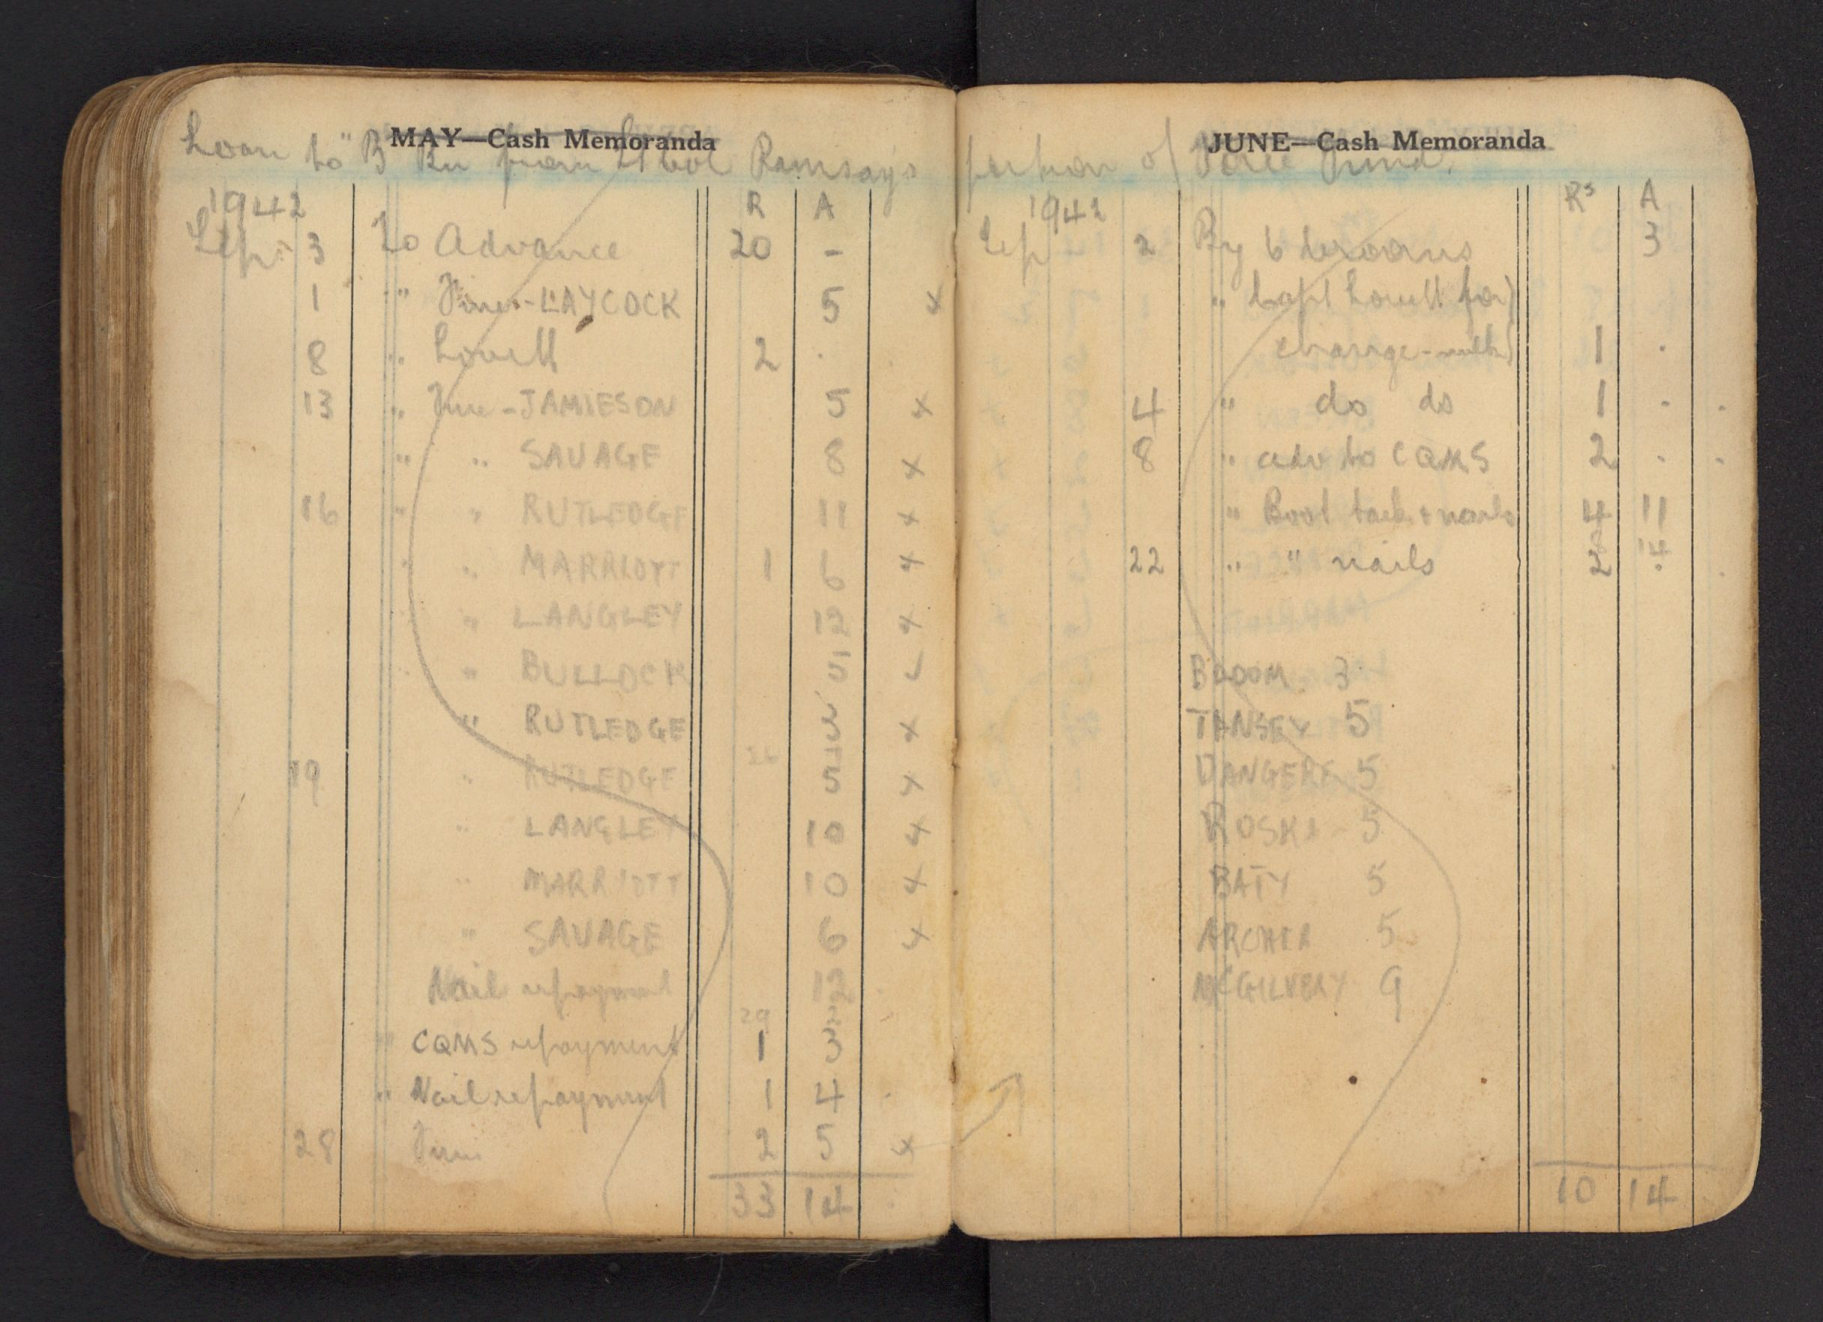 MAY—Cash Memoranda
Loan to "B" Bn from Lt Col Ramsay's portion of Force Fund.
1942 R A
Sept 3 To Advance 20 -
1 " Fines - LAYCOCK 5 x
8 " Lovell 2 .
13 " Fine - JAMIESON 5 x
" " SAVAGE 8 x
16 " " RUTLEDGE 11 x
" " MARRIOTT 1 6 x
" LANGLEY 12 x
" BULLOCK 5
" RUTLEDGE 3 x
26
19 " RUTLEDGE 5 x
" LANGLEY 10 x
" MARRIOTT 10 x
" SAVAGE 6 x
Nail repayment 12
29
" CQMS repayment 1 3
" Nail repayment 1 4
28 Fine 2 5 x
33 14
JUNE—Cash Memoranda
1942 Rs A
Sep 2 By 6 brooms 3
" Capt Lovell for)
change - milk) 1 .
4 " do do 1 .
8 " adv to CQMS 2 .
" Boot tacks & nails 4 11
8 14
22 " " nails 2 .
BLOOM 3
TANSEY 5
DANGERF 5
5
BATY 5
ARCHER 5
McGILVRAY 9
10 14